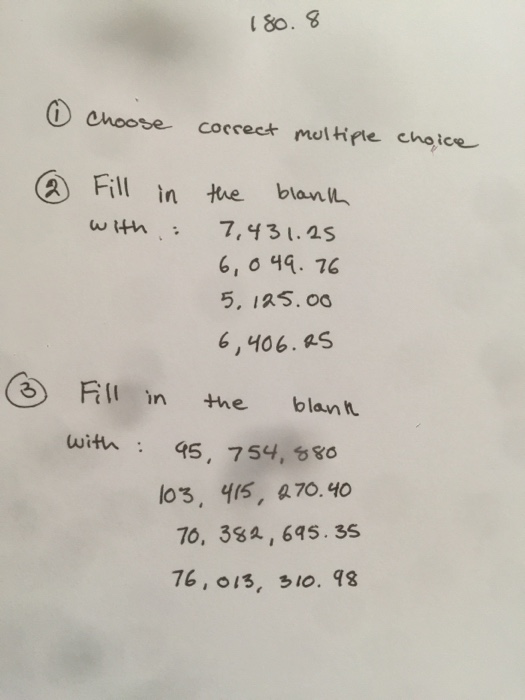 180.8
① choose correct multiple choice
② Fill in the blank
with : 7,431.25
6,049.76
5,125.00
6,406.25
③ Fill in the blank
with : 95,754,880
103,415,270.40
70,382,695.35
76,013,310.98